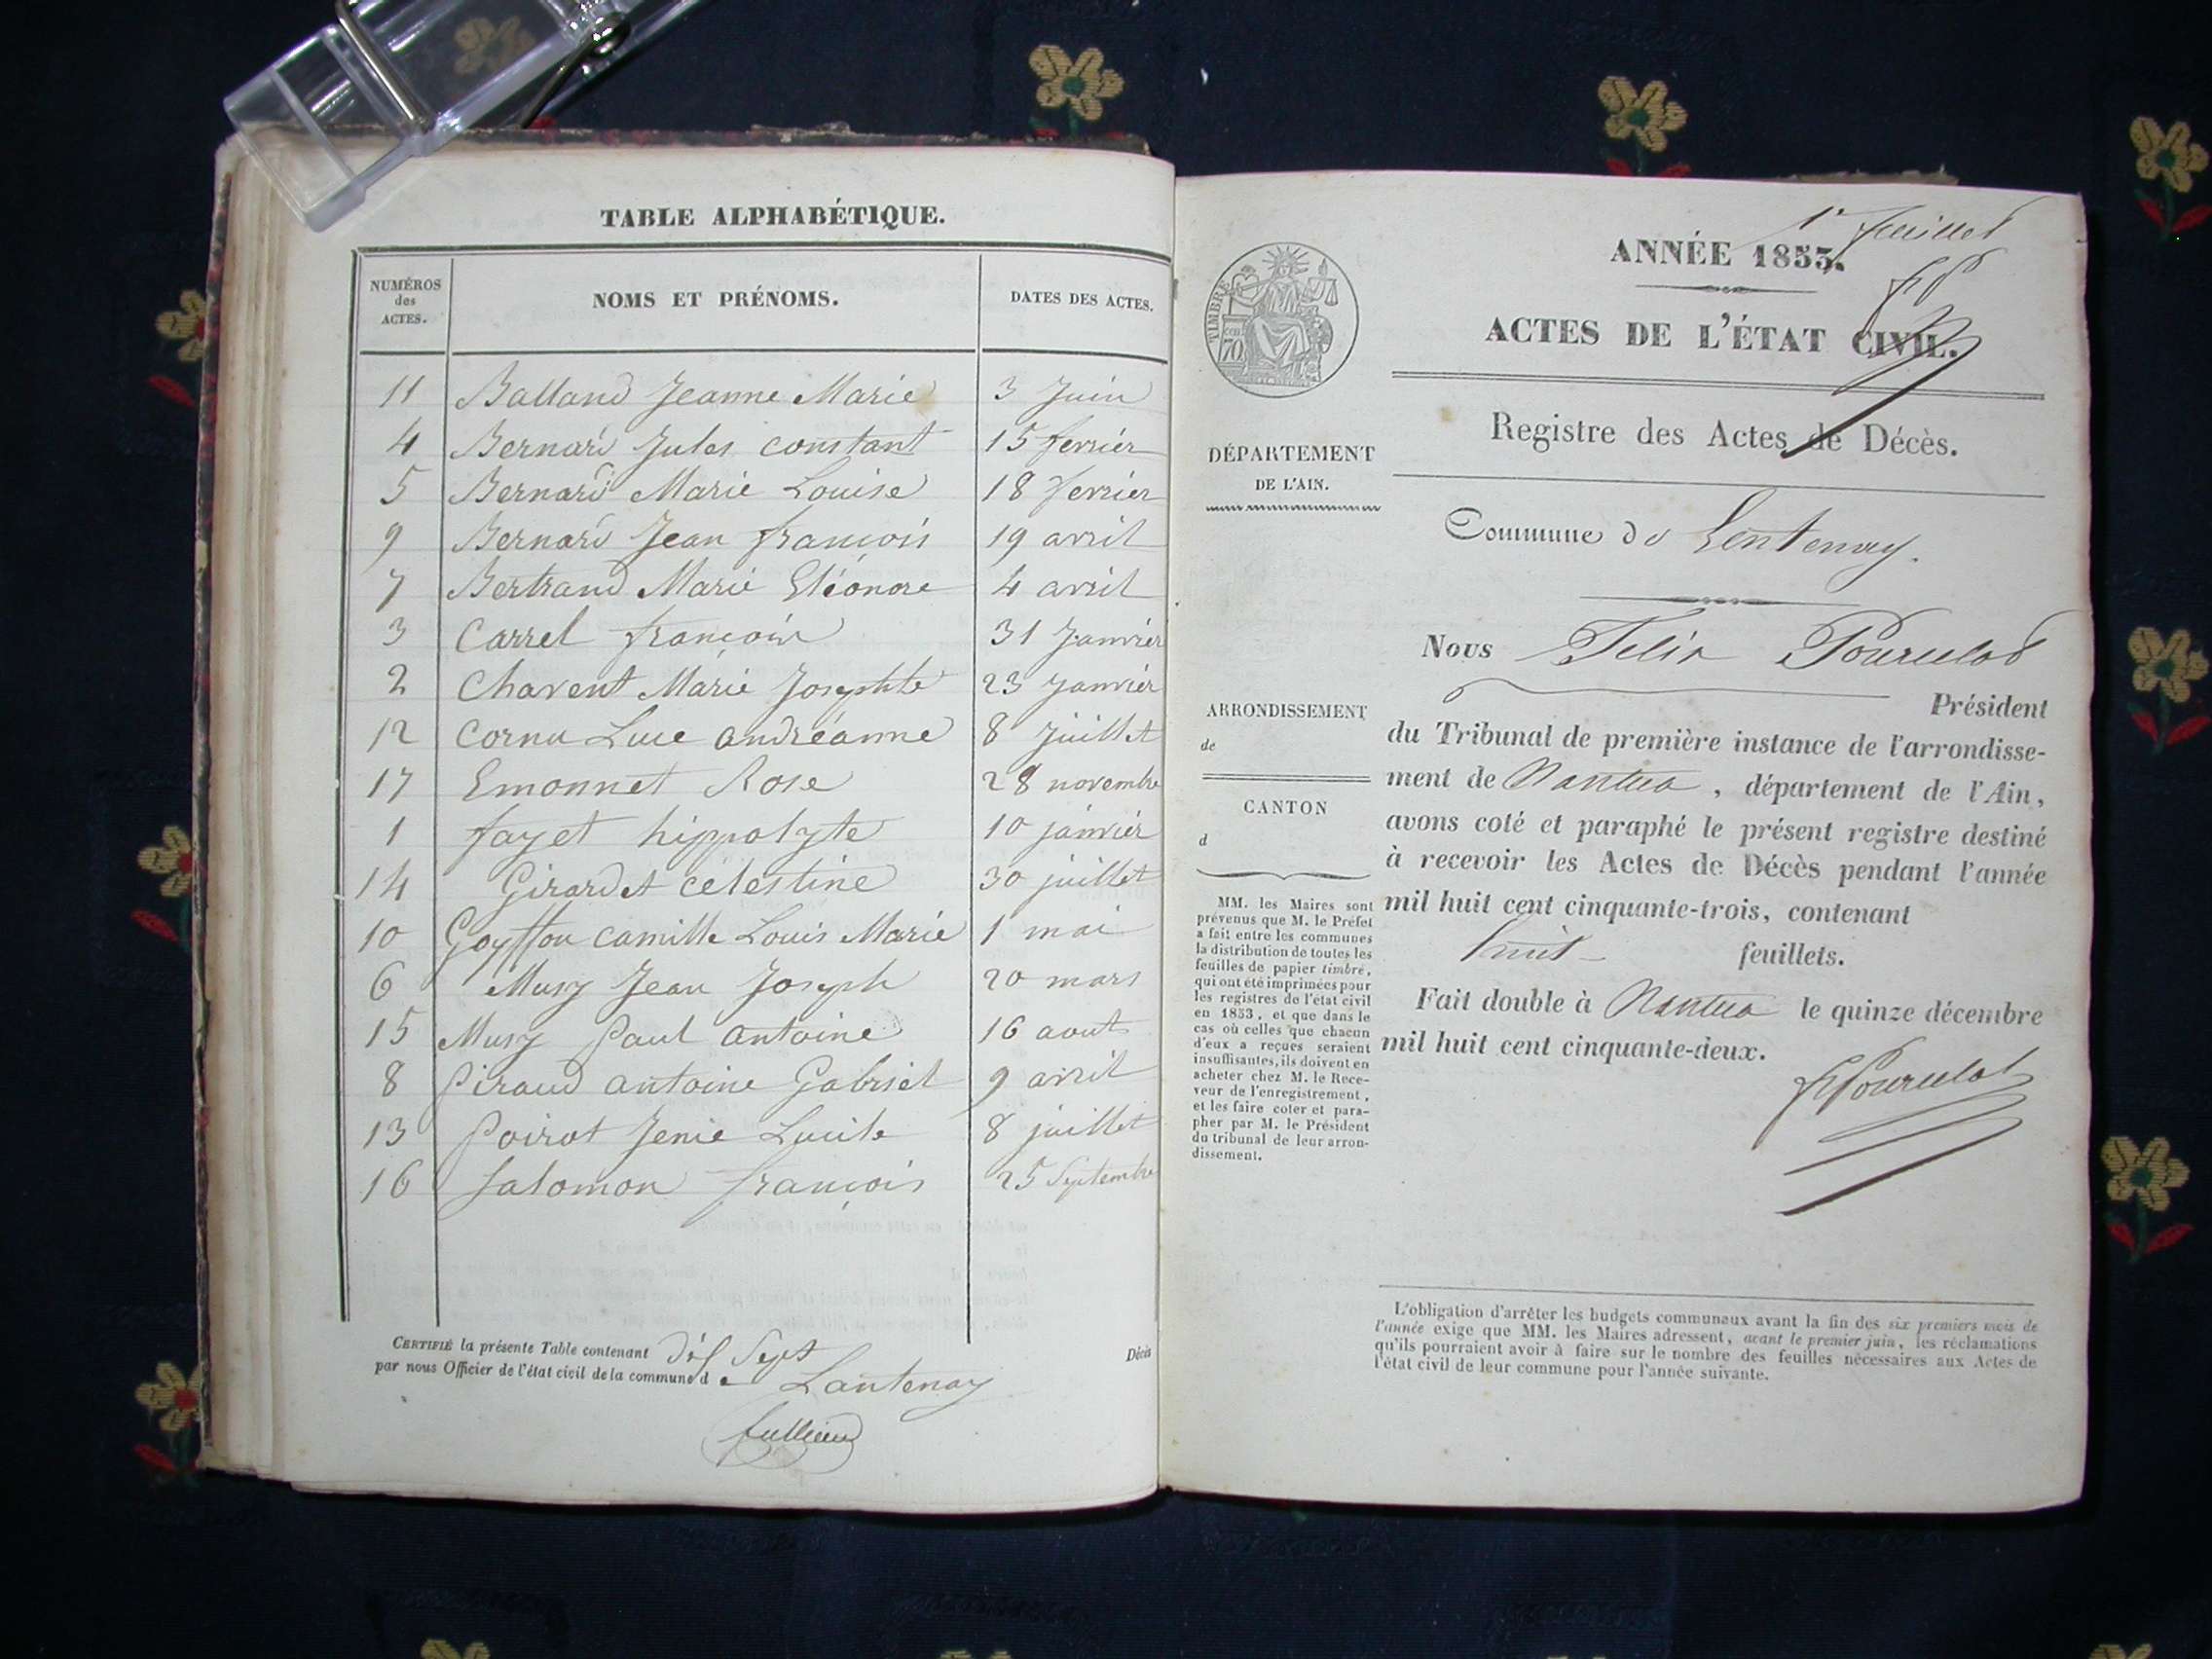 TABLE ALPHABÉTIQUE.
NUMÉROS des ACTES. NOMS ET PRÉNOMS. DATES DES ACTES.
11 Balland Jeanne Marie 3 Juin
4 Bernard Jules constant 15 fevrier
5 Bernard Marie Louise 18 fevrier
9 Bernard Jean françois 19 avril
7 Bertrand Marie Eléonore 4 avril
3 Carrel françois 31 Janvier
2 Chavent Marie Josephte 23 Janvier
12 Cornu Luce andréanne 8 Juillet
17 Emonnet Rose 28 novembre
1 fayet hippolyte 10 janvier
14 Girardet célestine 30 juillet
10 Goyffon camille Louis Marie 1 mai
6 Musy Jean Joseph 20 mars
15 Musy Paul antoine 16 aout
8 Piraud antoine Gabriel 9 avril
13 Poirot Jenie Lucile 8 juillet
16 Salomon françois 25 Septembre
CERTIFIÉ la présente Table contenant dix Sept Décès
par nous Officier de l'état civil de la commune de Lantenay
1er feuillet
ANNÉE 1853.
TIMBRE
70
ACTES DE L'ÉTAT CIVIL.
Registre des Actes de Décès.
DÉPARTEMENT
DE L'AIN.
Commune de Lentenay.
Nous Felix Pourcelot
Président
ARRONDISSEMENT
de
CANTON
d
du Tribunal de première instance de l'arrondisse-
ment de Nantua, département de l'Ain,
avons coté et paraphé le présent registre destiné
à recevoir les Actes de Décès pendant l'année
mil huit cent cinquante-trois, contenant
huit feuillets.
Fait double à Nantua le quinze décembre
mil huit cent cinquante-deux.
FPourcelot
MM. les Maires sont
prévenus que M. le Préfet
a fait entre les communes
la distribution de toutes les
feuilles de papier timbré,
qui ont été imprimées pour
les registres de l'état civil
en 1853, et que dans le
cas où celles que chacun
d'eux a reçues seraient
insuffisantes, ils doivent en
acheter chez M. le Rece-
veur de l'enregistrement,
et les faire coter et para-
pher par M. le Président
du tribunal de leur arron-
dissement.
L'obligation d'arrêter les budgets communaux avant la fin des six premiers mois de
l'année exige que MM. les Maires adressent, avant le premier juin, les réclamations
qu'ils pourraient avoir à faire sur le nombre des feuilles nécessaires aux Actes de
l'état civil de leur commune pour l'année suivante.